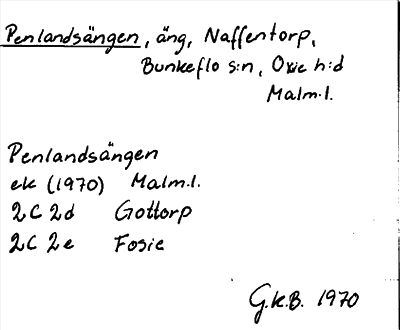 Penlandsängen, äng, Naffentorp,
Bunkeflo s:n, Oxie h:d
Malm.l.
Penlandsängen
ek (1970) Malm.l.
2C 2d Gottorp
2C 2e Fosie
G.K.B. 1970